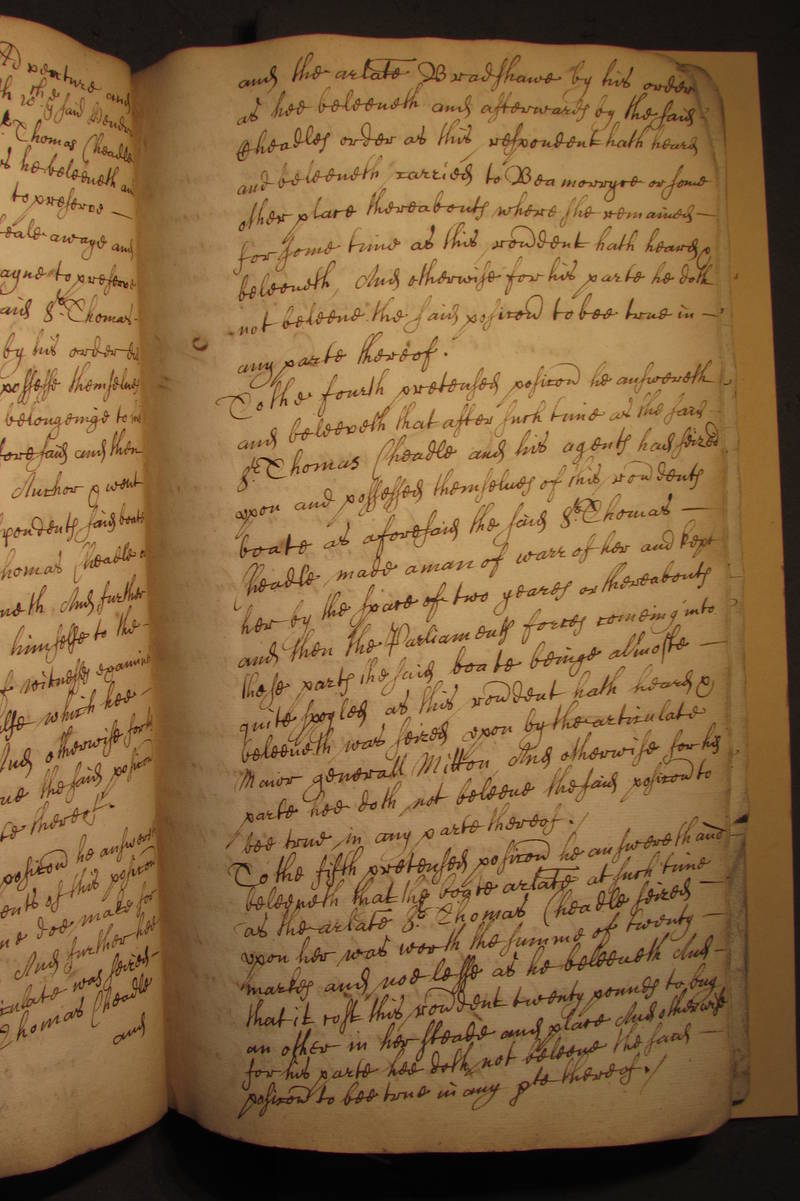 Adventure and
th 20th ye said Vendr
Sr Thomas Cheadle
as he beleeneth an
to preserve —
steale awaye and
agayne to preserve
said Sr. Thomas
by his order
possesse themselves
belongeinge to
foresaid and then
Anchor & went
spondents said boate
Thomas Cheadle
neth And further
himselfe to the —
of witnesses examined
else which hee —
And otherwise for his
the said posicon
te thereof.
posicon he answereth
ents of this posicon
ne doe make for
And further hee
iculate was seized
Thomas Cheadle
and
and the arlate Bradshawe by his order
as hee beleeveth and afterwards by the said
Cheadles order as this respondent hath heard
and beleeveth carried to Beamorryce or some
other place thereabouts where she remained —
for some time as this rondent hath heard &
beleeveth, And otherwise for his parte he doth
not beleeve the said posicon to bee true in —
any parte thereof.
To the fourth pretensed posicon he answereth
and beleeveth that after such time as the said —
Sr. Thomas Cheadle and his agents had seized
upon and possessed themselves of this rondents
boate as aforesaid the said Sr. Thomas —
Cheadle made a man of warr of her and kept
her by the space of two yeares or thereabouts
and then the Parliaments forces comeing into
these parts the said boate beinge almoste —
quite spoyled as this rondent hath heard &
beleeveth was seized upon by the articulate
Maior generall Mitton And otherwise for his
parte hee doth not beleeve the said posicon to
bee true in any parte thereof./
To the fifth pretensed posicon he answereth and
beleeveth that the boate arlate at such time
as the arlate Sr. Thomas Cheadle seized —
upon her was worth the summe of twenty —
markes and noe lesse as he beleeveth And —
that it cost this rondent twenty pounds to buy
an other in her steade and place And otherwise
for his parte hee doth not beleeve the said —
posicon to bee true in any pte thereof./